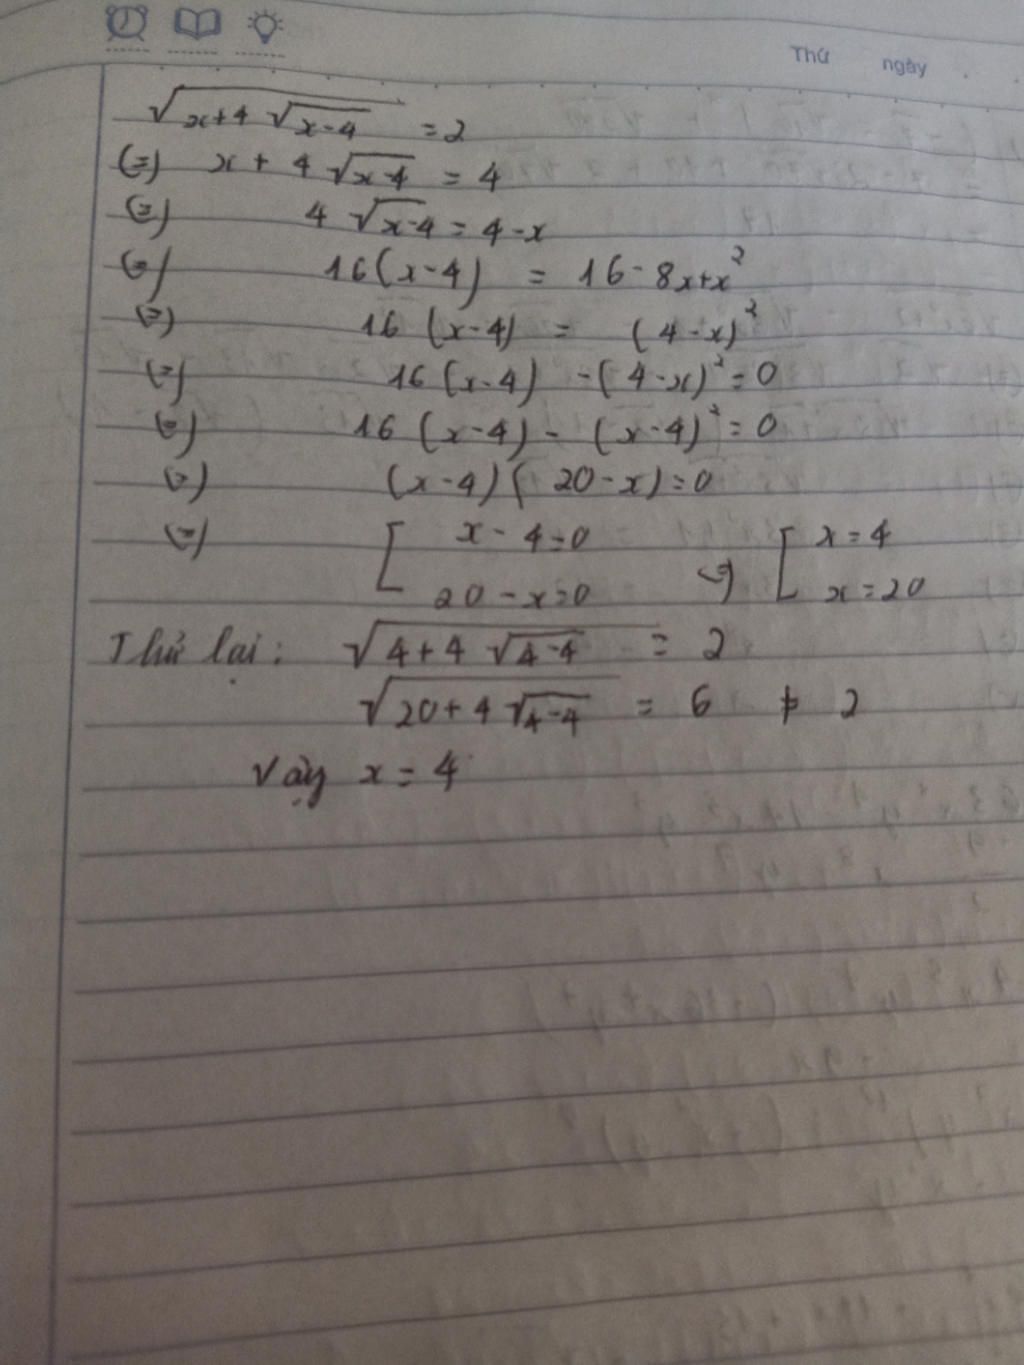 Thứ ngày
√(x+4√(x-4)) = 2
(=) x + 4√(x-4) = 4
(=) 4√(x-4) = 4-x
(=) 16(x-4) = 16-8x+x²
(=) 16(x-4) = (4-x)²
(=) 16(x-4) -(4-x)² = 0
(=) 16(x-4) - (x-4)² = 0
(=) (x-4)(20-x)=0
(=) [ x-4=0 (=) [ x=4
20-x=0 x=20
Thử lại: √(4+4√(4-4)) = 2
√(20+4√(4-4)) = 6 ≠ 2
Vậy x = 4